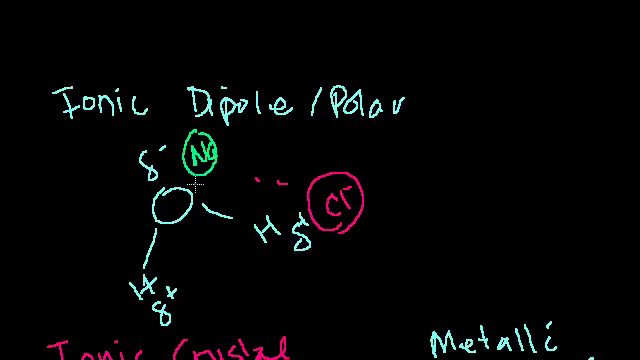 Ionic Dipole / Polar
δ- Na
Cl-
H δ+
H δ+
Ionic Crystal
Metalli